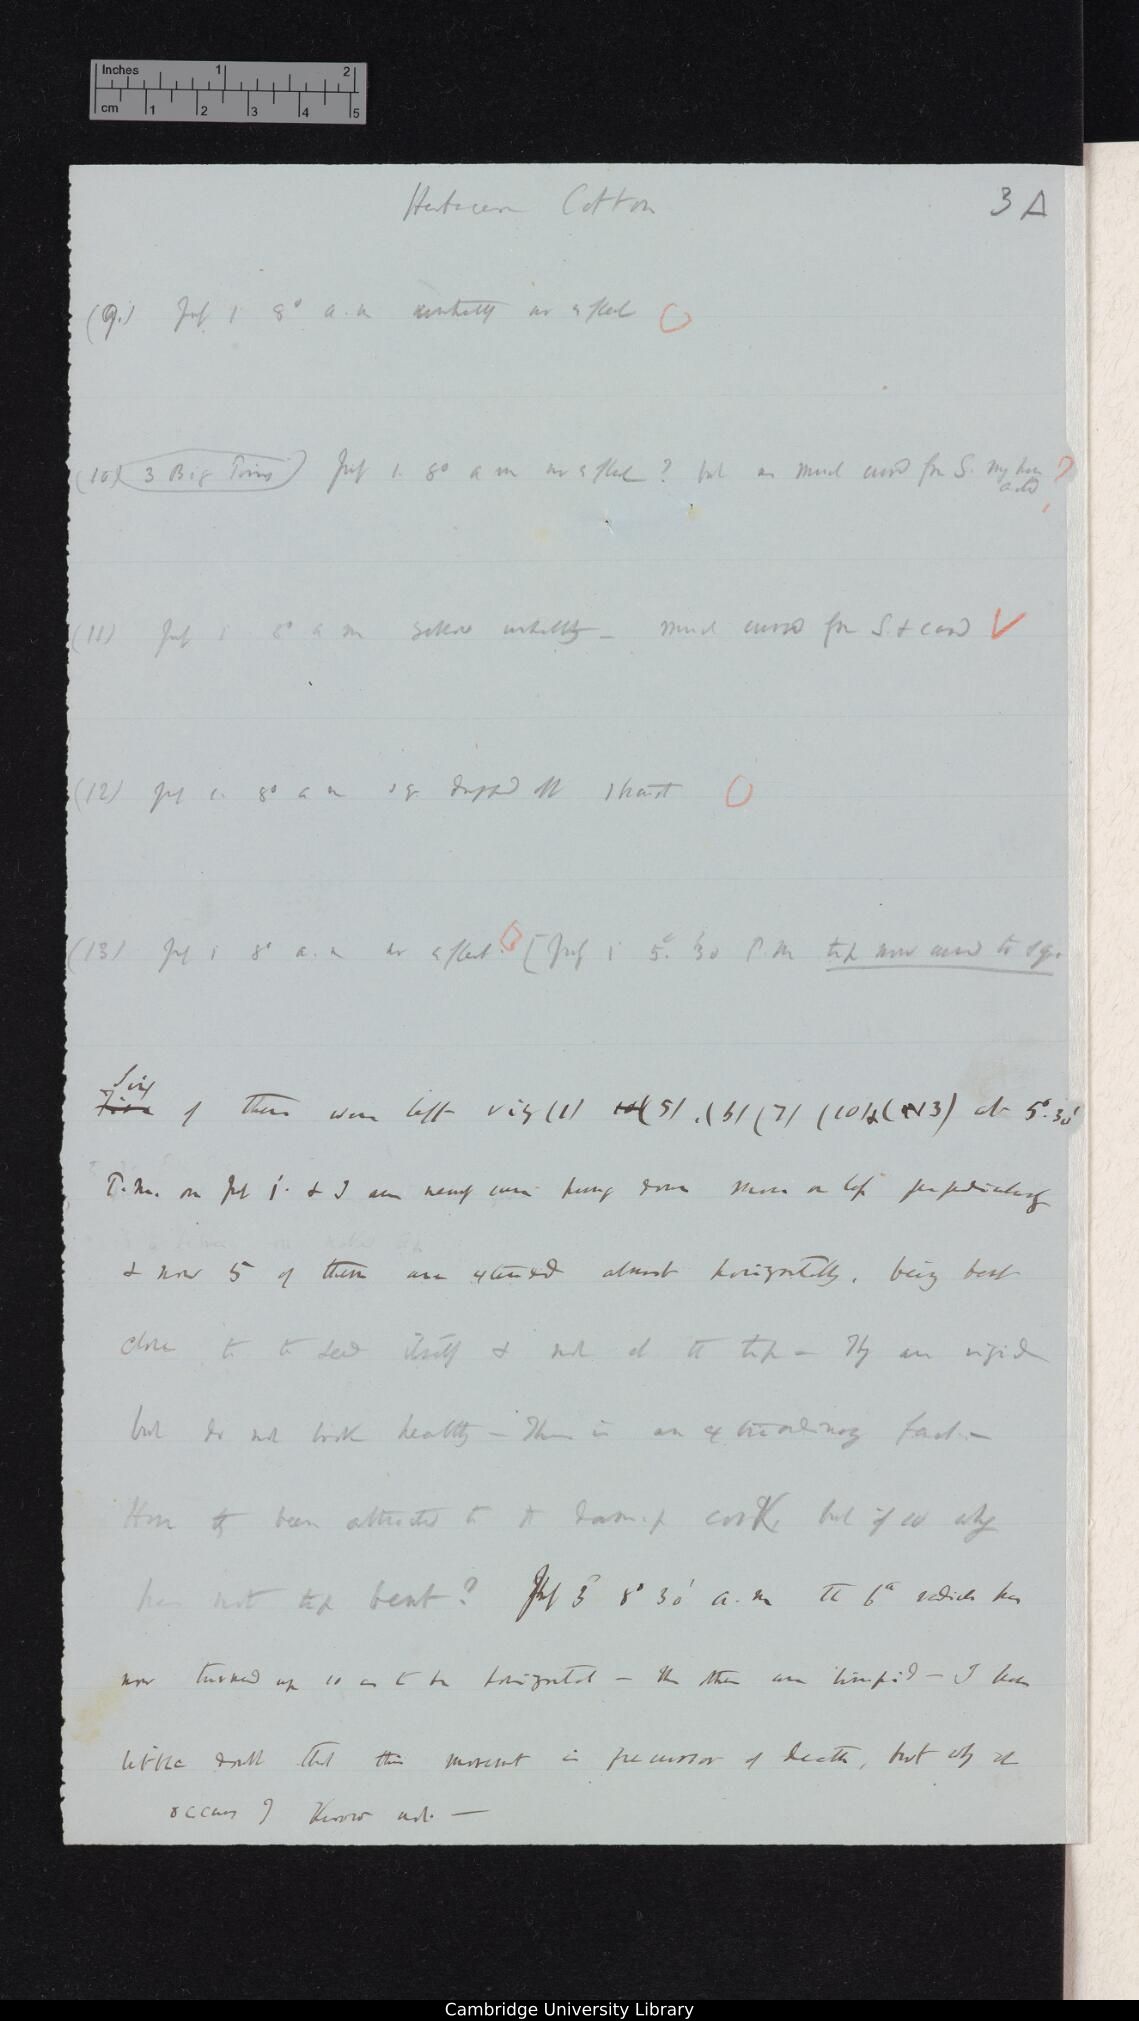 Inches 1 2
cm 1 2 3 4 5
Herbaceum Cotton 3A
(9.) July 1 8° a.m unhealthy no effect
(10) 3 Big Pins July 1. 8° a m no effect? but so much curved from S.
(11) July 1 8° a m unhealthy — much curved from S. & card
(12) July 1. 8° a m sq dropped off
(13) July 1 8° a.m no effect. [July 1 5° 30 P.m tip now curved to sqr
Six
Five of them were left viz (1) (5), (6) (7) (10) & (13) at 5°. 30'
P.M. on July 1. & I am nearly sure hung down more or less perpendicularly
& now 5 of them are extended almost horizontally, being bent
close to the seed itself & not at the tip — They are rigid
but do not look healthy — This is an extraordinary fact. —
Have they been attracted to the damp cork, but if so why
has not tip bent? July 3 8° 30' a.m the 6th radicle has
now turned up so as to be horizontal — the others are limpid — I have
little doubt that this movement is precursor of death, but why it
occurs I know not. —
Cambridge University Library